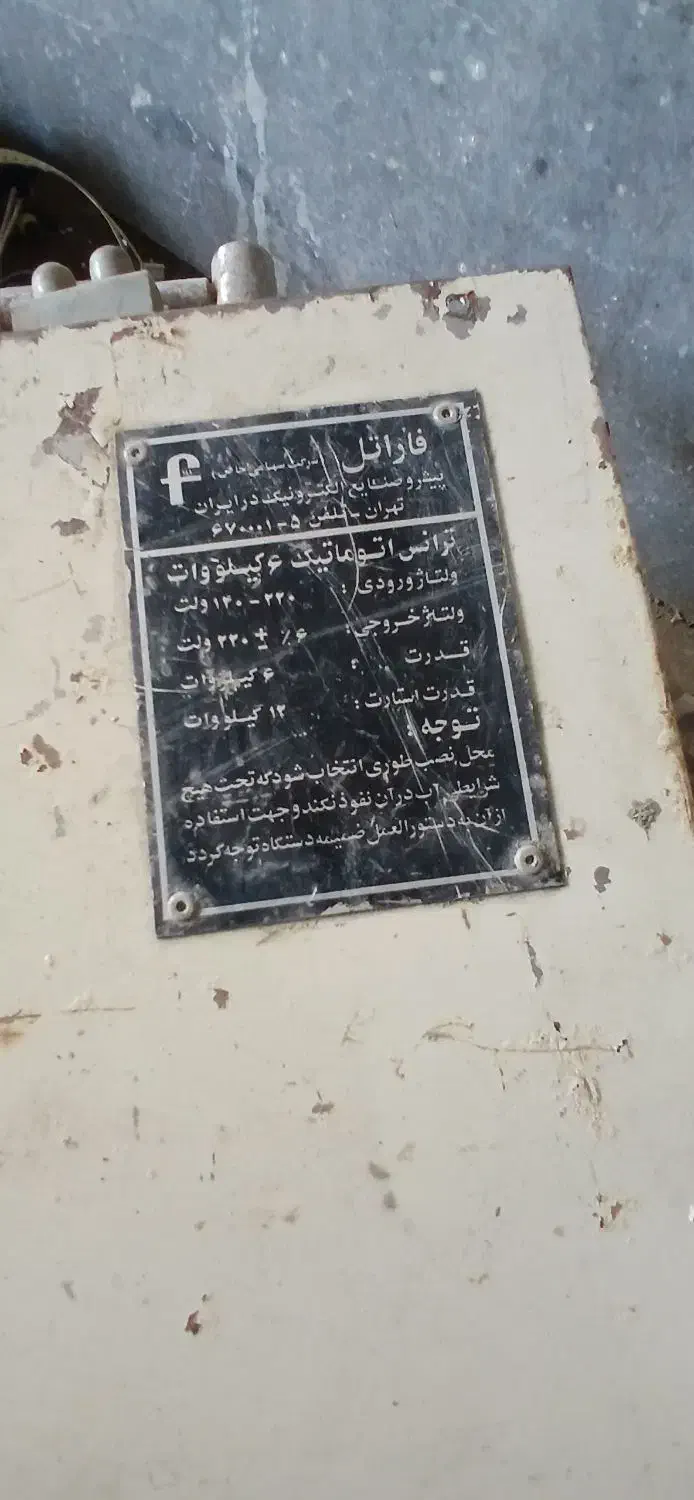 فاراتل (شرکت سهامی خاص)
f
پیشرو صنایع الکترونیک در ایران
تهران - تلفن ۵-۶۷۰۰۰۱
ترانس اتوماتیک ۶ کیلووات
ولتاژ ورودی : ۲۲۰ - ۱۴۰ ولت
ولتاژ خروجی : ۶٪ ± ۲۲۰ ولت
قدرت : ۶ کیلووات
قدرت استارت : ۱۲ کیلووات
توجه :
محل نصب طوری انتخاب شود که تحت هیچ
شرایطی آب در آن نفوذ نکند و جهت استفاده
از آن به دستورالعمل ضمیمه دستگاه توجه گردد